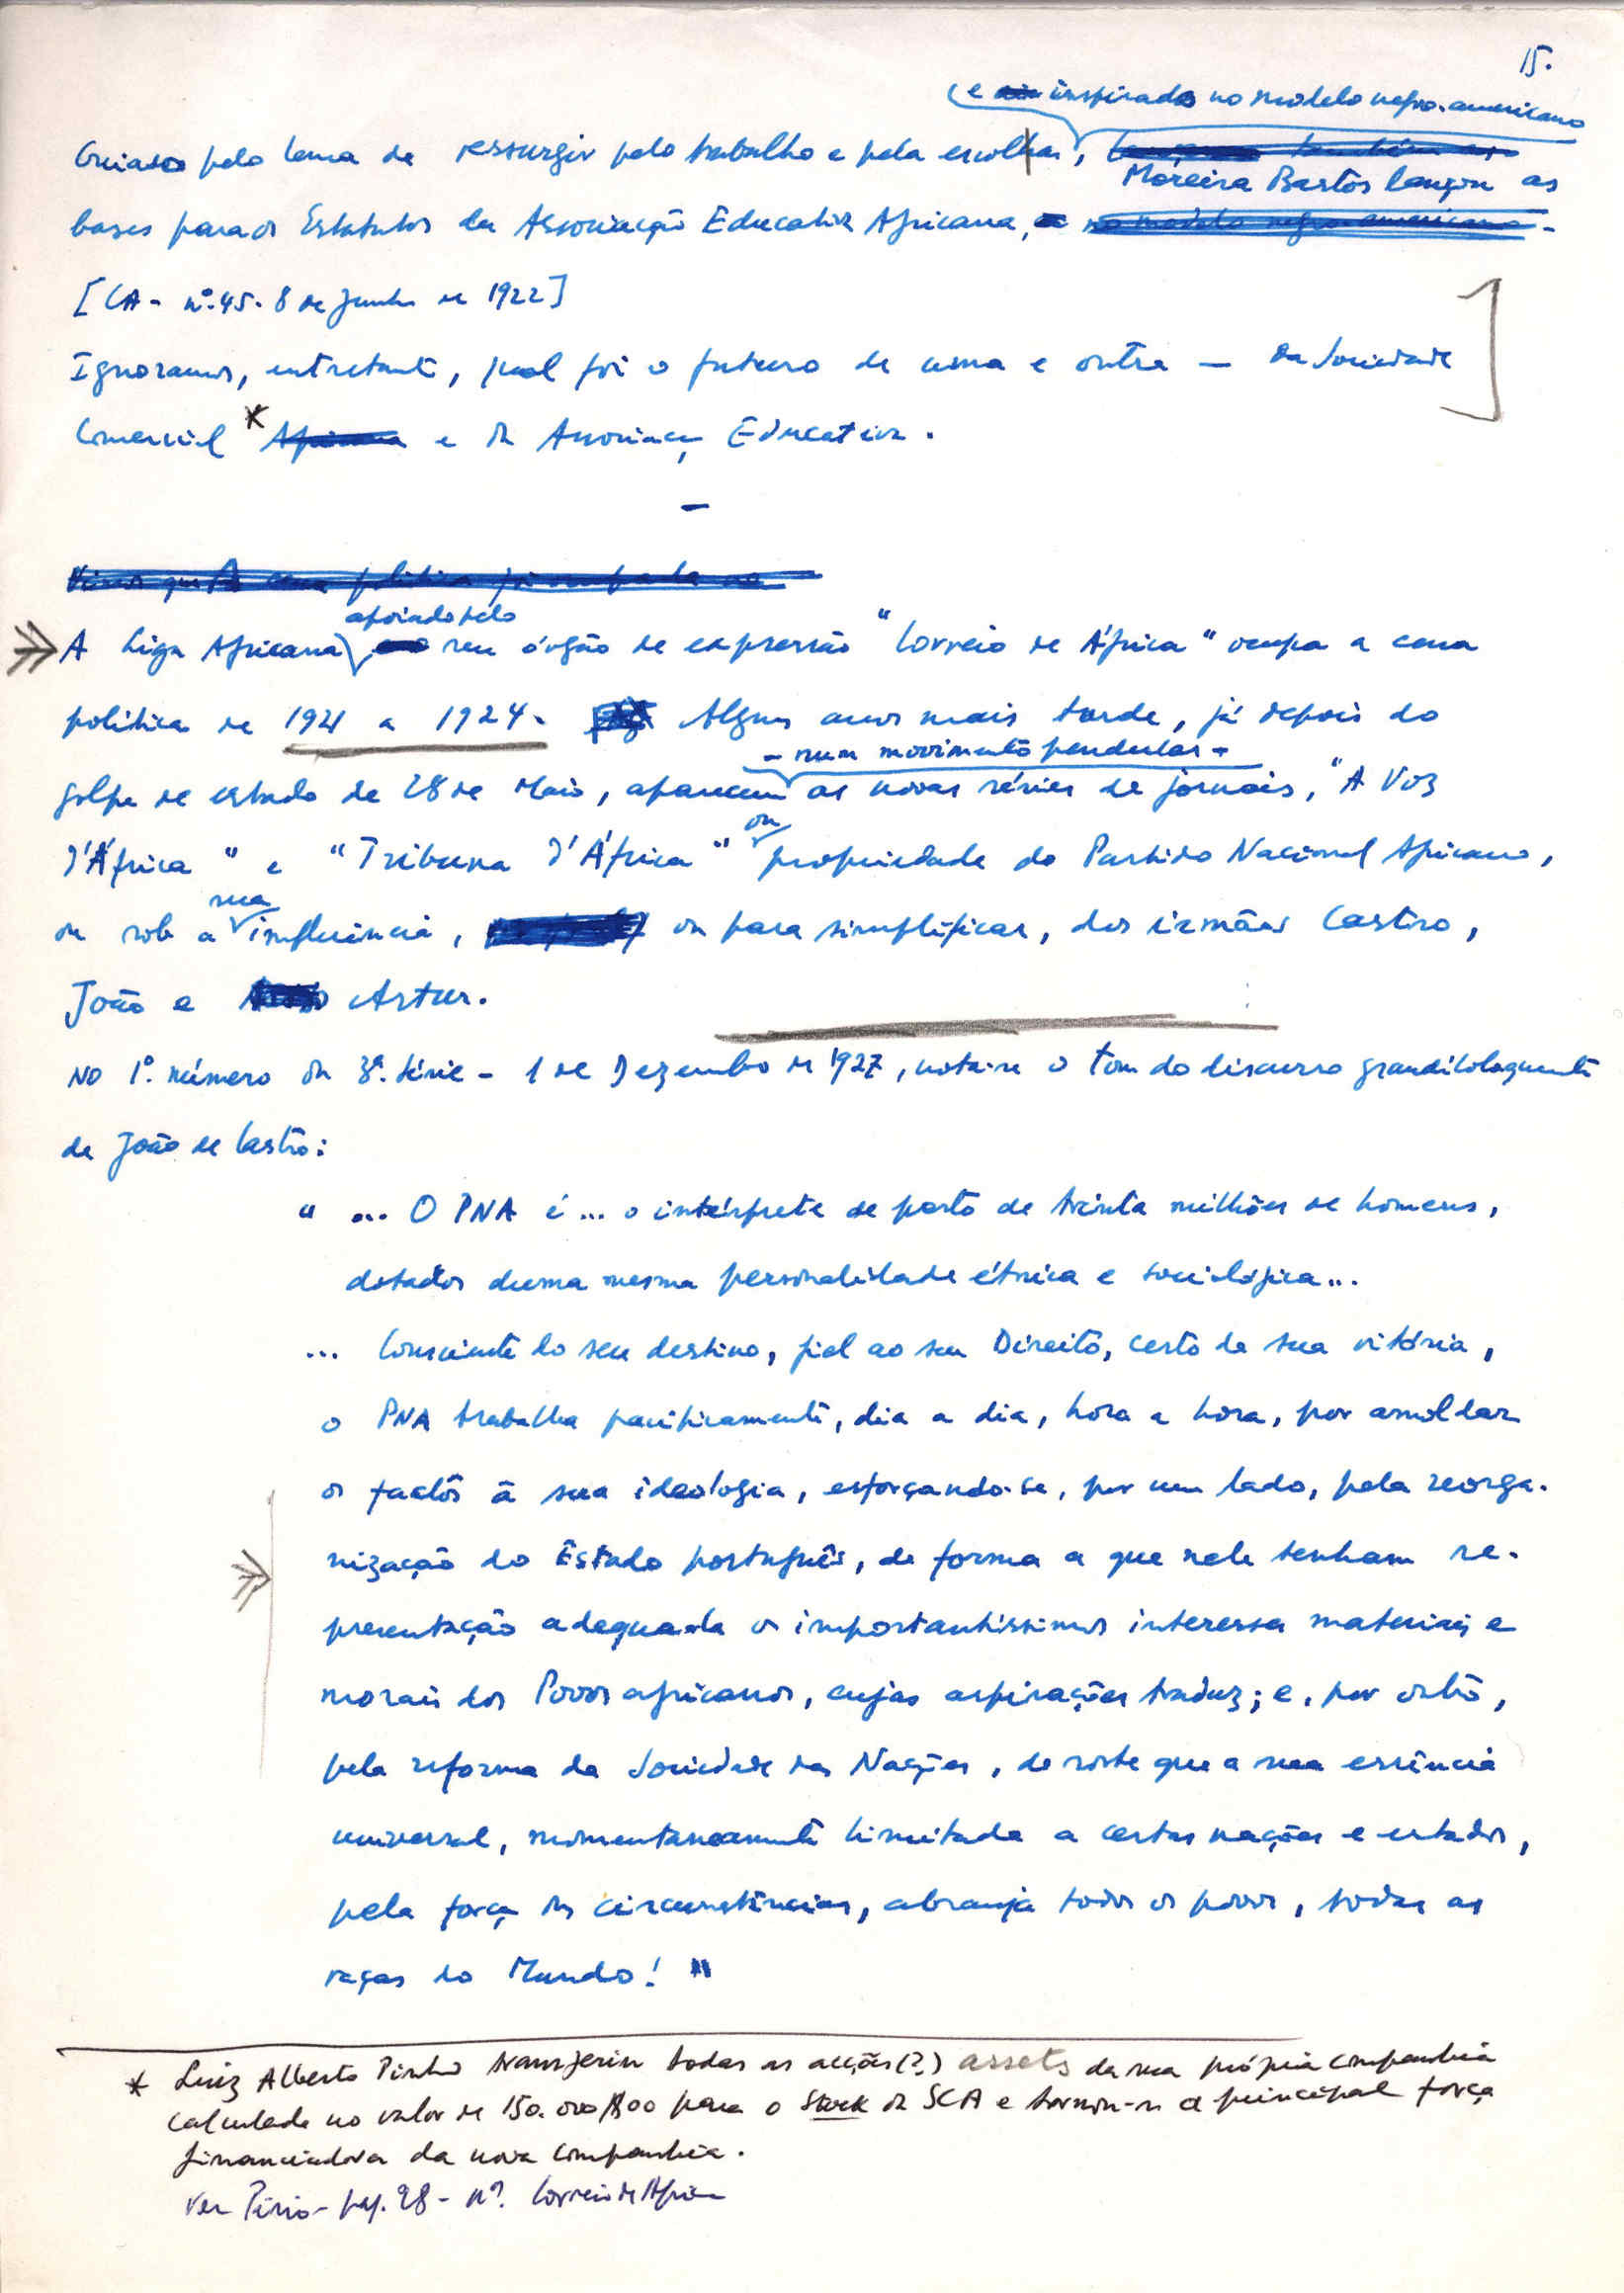 15.
e inspirado no modelo negro-americano
Guiado pelo lema de ressurgir pelo trabalho e pela escola,
Moreira Bastos lançou as
bases para os Estatutos da Associação Educativa Africana, no modelo negro-americano.
[CA - nº.45. 8 de Junho de 1922]
Ignoramos, entretanto, qual foi o futuro de uma e outra — da Sociedade
Comercial * Africana e da Associação Educativa.
—
apoiada pelo
A Liga Africana, seu órgão de expressão "Correio de África" ocupa a cena
política de 1921 a 1924. Alguns anos mais tarde, já depois do
- num movimento pendular -
golpe de estado de 28 de Maio, aparecem as novas séries de jornais, "A Voz
ou
d'África" e "Tribuna d'África" propriedade do Partido Nacional Africano,
sua
ou sob a influência, ou para simplificar, dos irmãos Castro,
João e Artur.
No 1º. número da 3ª. série - 1 de Dezembro de 1927, nota-se o tom do discurso grandiloloquente
de João de Castro:
"... O PNA é ... o intérprete de perto de trinta milhões de homens,
dotados duma mesma personalidade étnica e sociológica...
... Consciente do seu destino, fiel ao seu Direito, certo da sua vitória,
o PNA trabalha pacificamente, dia a dia, hora a hora, por amoldar
os factos à sua ideologia, esforçando-se, por um lado, pela reorga-
nização do Estado português, de forma a que nele tenham re-
presentação adequada os importantíssimos interesses materiais e
morais dos Povos africanos, cujas aspirações traduz; e, por outro,
pela reforma da Sociedade das Nações, de sorte que a sua essência
universal, momentaneamente limitada a certas nações e estados,
pela força das circunstâncias, abranja todos os povos, todas as
raças do Mundo!"
* Luiz Alberto Pinho transferiu todas as acções (?) assets da sua própria companhia
calculada no valor de 150.000$00 para o Stock da SCA e tornou-se a principal força
financiadora da nova companhia.
Ver Pirio - pag. 28 - nº. Correio de África